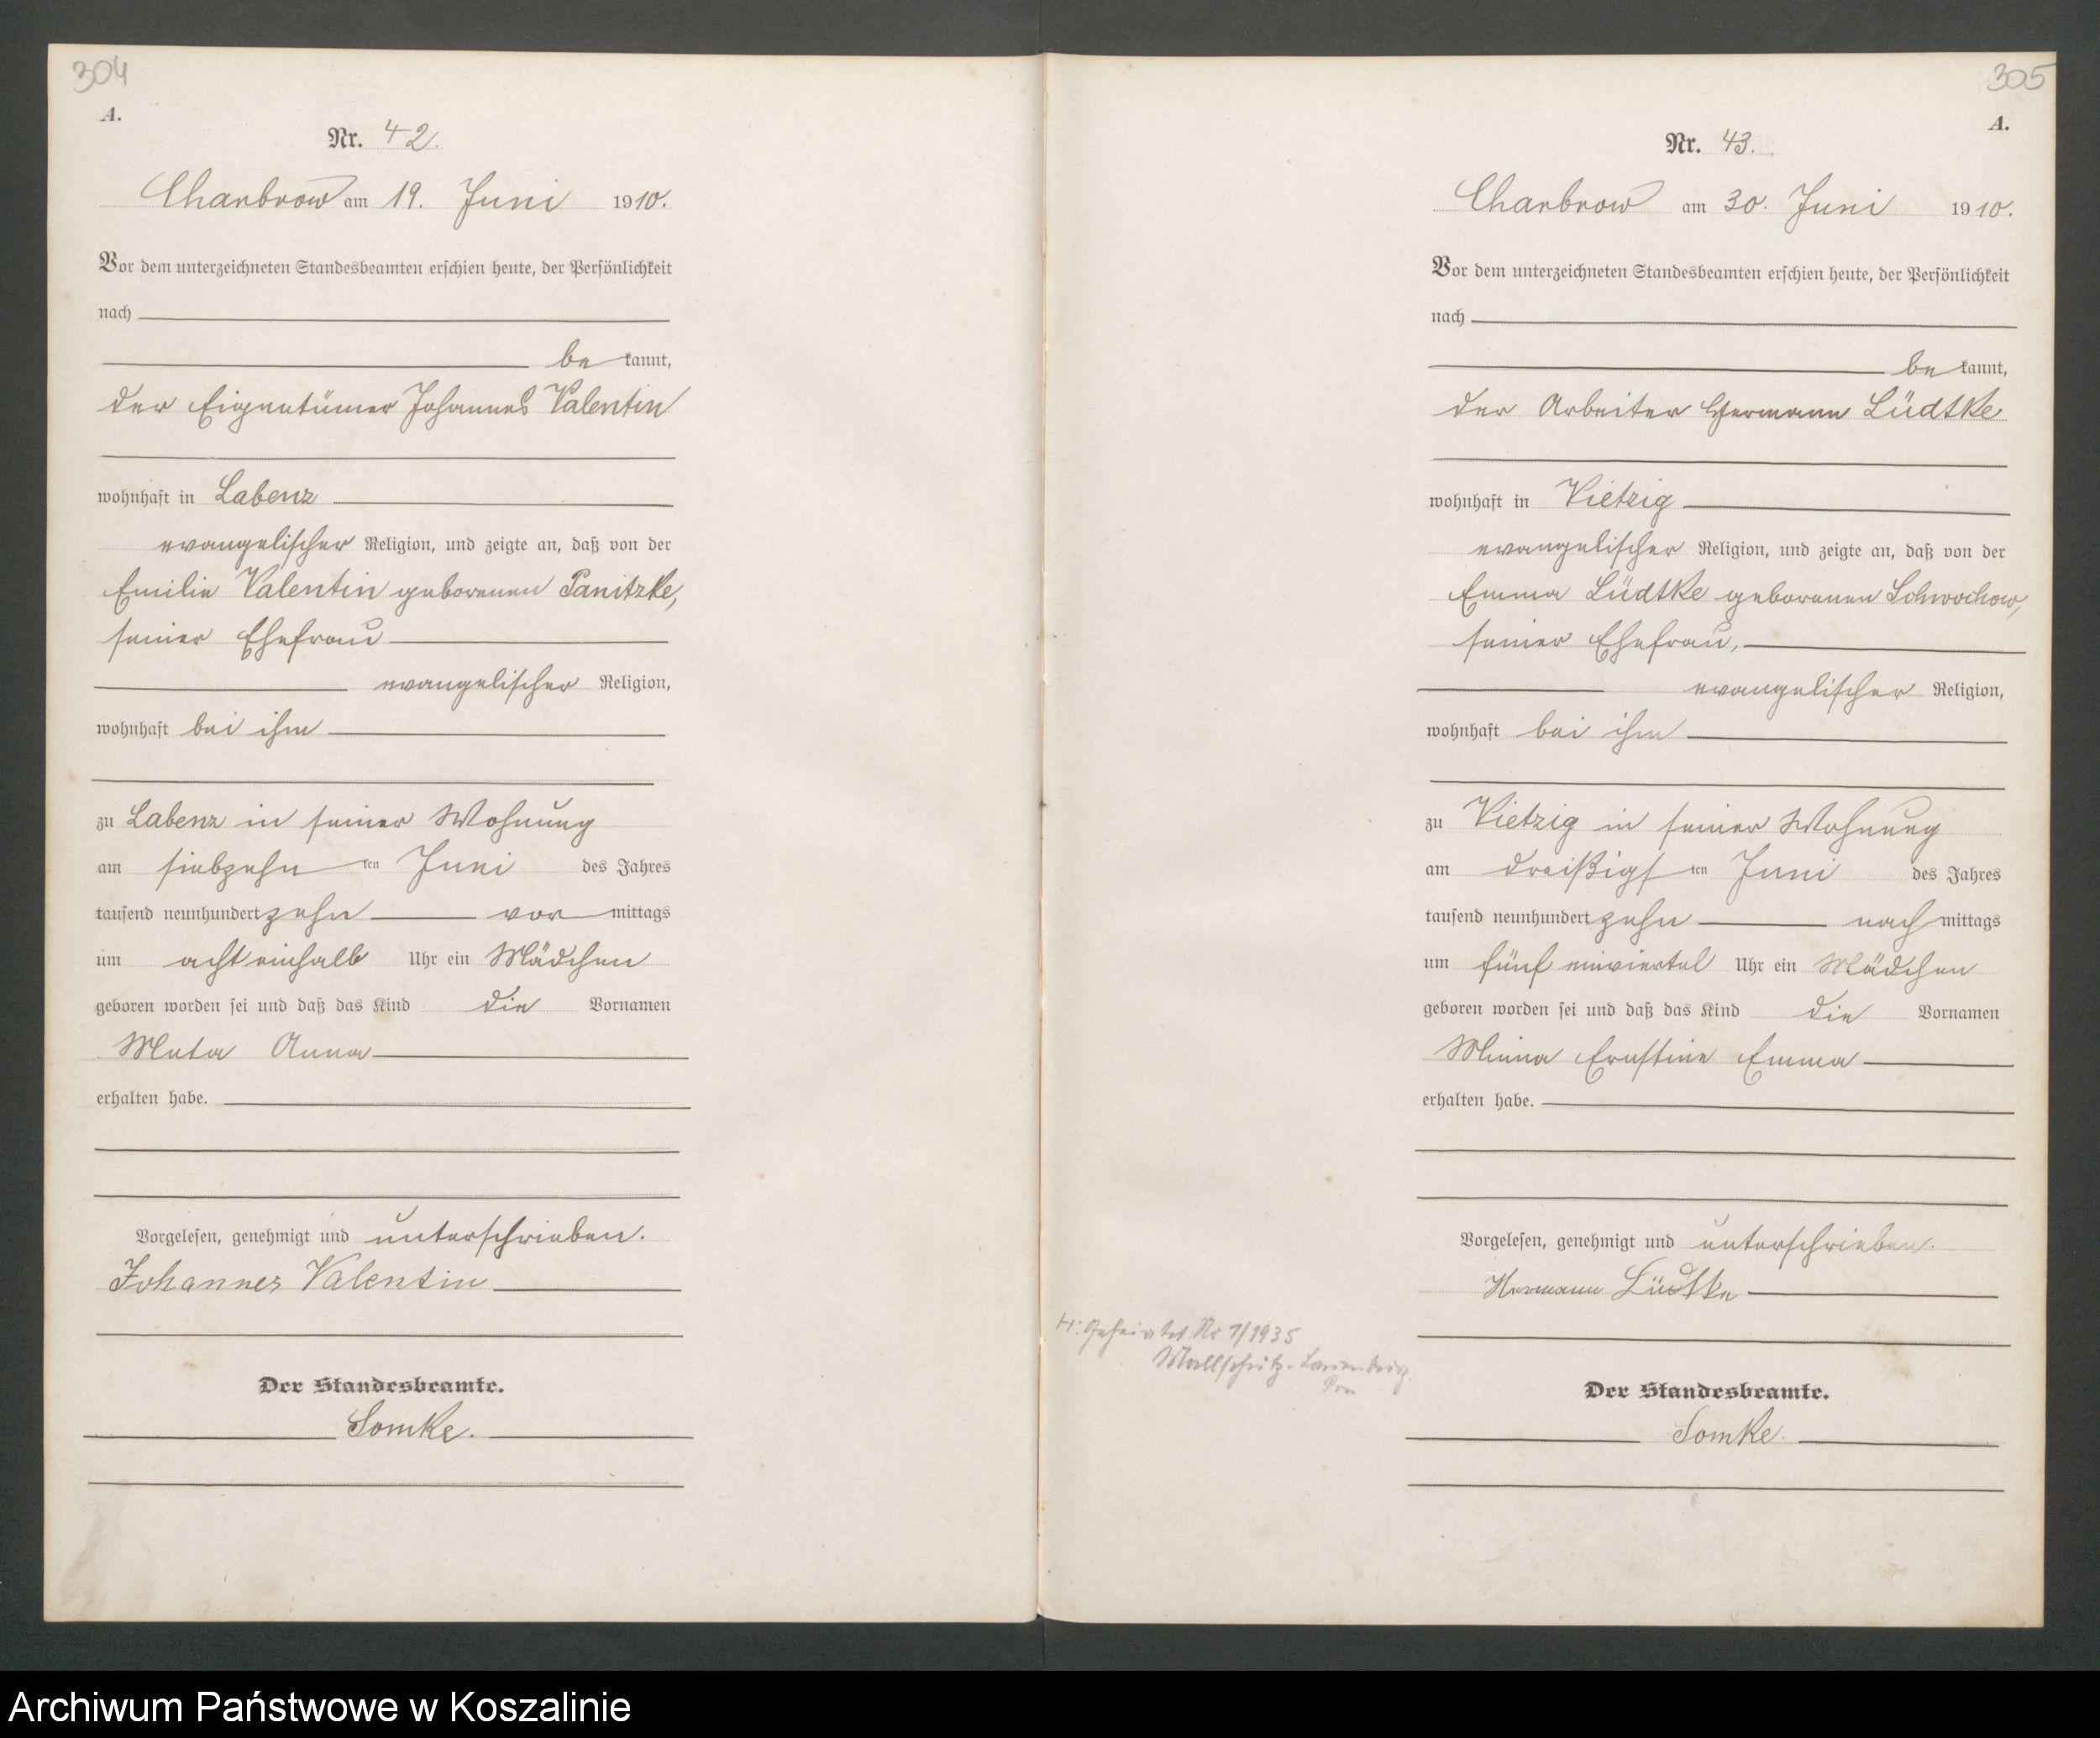 304
A.
Nr. 42.
Charbrow am 19. Juni 1910.
Vor dem unterzeichneten Standesbeamten erschien heute, der Persönlichkeit
nach
be kannt,
der Eigentümer Johannes Valentin
wohnhaft in Labenz
evangelischer Religion, und zeigte an, daß von der
Emilie Valentin geborenen Panitzke,
seiner Ehefrau
evangelischer Religion,
wohnhaft bei ihm
zu Labenz in seiner Wohnung
am siebzehn ten Juni des Jahres
tausend neunhundert zehn vor mittags
um acht einhalb Uhr ein Mädchen
geboren worden sei und daß das Kind die Vornamen
Meta Anna
erhalten habe.
Vorgelesen, genehmigt und unterschrieben.
Johannes Valentin
Der Standesbeamte.
Somke.
305
A.
Nr. 43.
Charbrow am 30. Juni 1910.
Vor dem unterzeichneten Standesbeamten erschien heute, der Persönlichkeit
nach
be kannt,
der Arbeiter Hermann Lüdtke
wohnhaft in Vietzig
evangelischer Religion, und zeigte an, daß von der
Emma Lüdtke geborenen Schwochow,
seiner Ehefrau,
evangelischer Religion,
wohnhaft bei ihm
zu Vietzig in seiner Wohnung
am dreißigs ten Juni des Jahres
tausend neunhundert zehn nach mittags
um fünf einviertel Uhr ein Mädchen
geboren worden sei und daß das Kind die Vornamen
Minna Ernstine Emma
erhalten habe.
Vorgelesen, genehmigt und unterschrieben.
Hermann Lüdtke
H: geheiratet Nr 7/1935
Mallschütz-
Der Standesbeamte.
Somke.
Archiwum Państwowe w Koszalinie